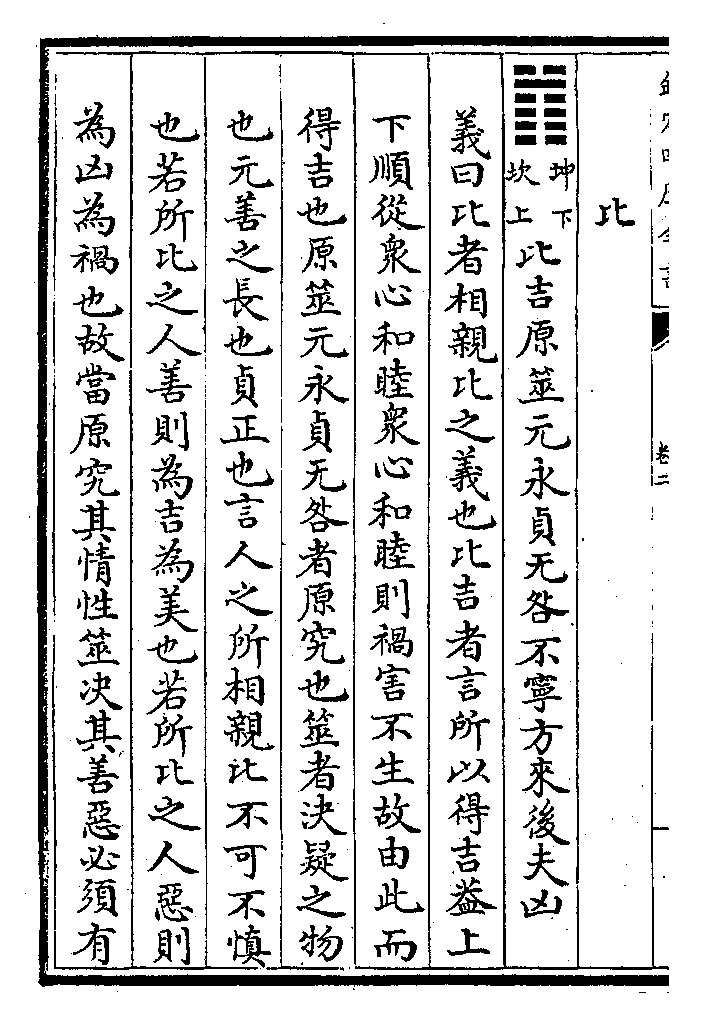 欽定四庫全書
卷二
比
坤下
坎上
比吉原筮元永貞无咎不寧方來後夫凶
義曰比者相親比之義也比吉者言所以得吉葢上
下順從衆心和睦衆心和睦則禍害不生故由此而
得吉也原筮元永貞无咎者原究也筮者決疑之物
也元善之長也貞正也言人之所相親比不可不慎
也若所比之人善則為吉為美也若所比之人惡則
為凶為禍也故當原究其情性筮决其善惡必須有